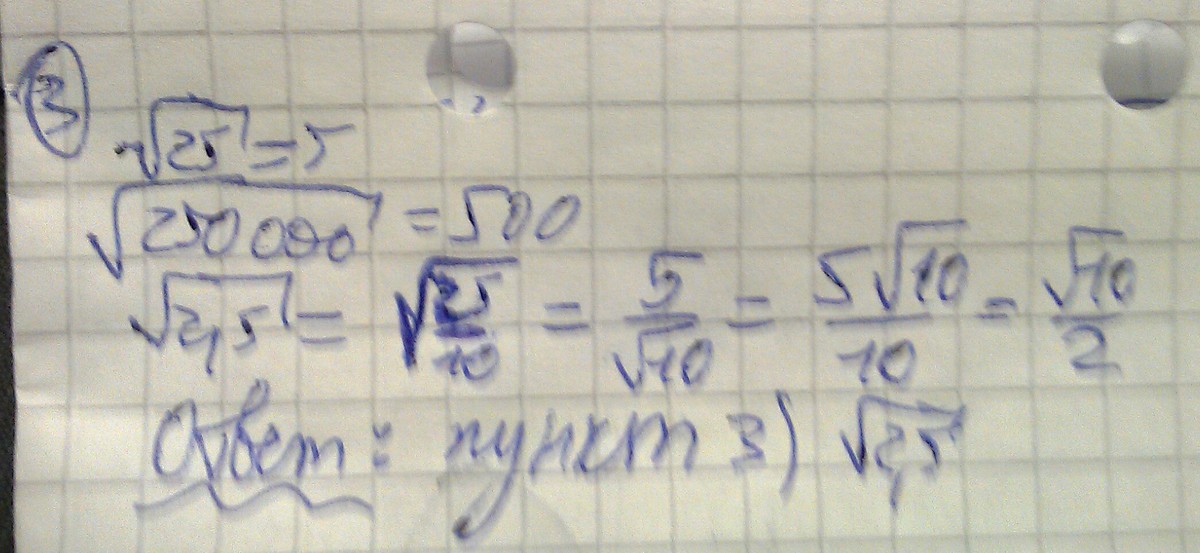 3
√25 = 5
√250000 = 500
√2,5 = √25/10 = 5/√10 = 5√10/10 = √10/2
Ответ: пункт 3) √2,5